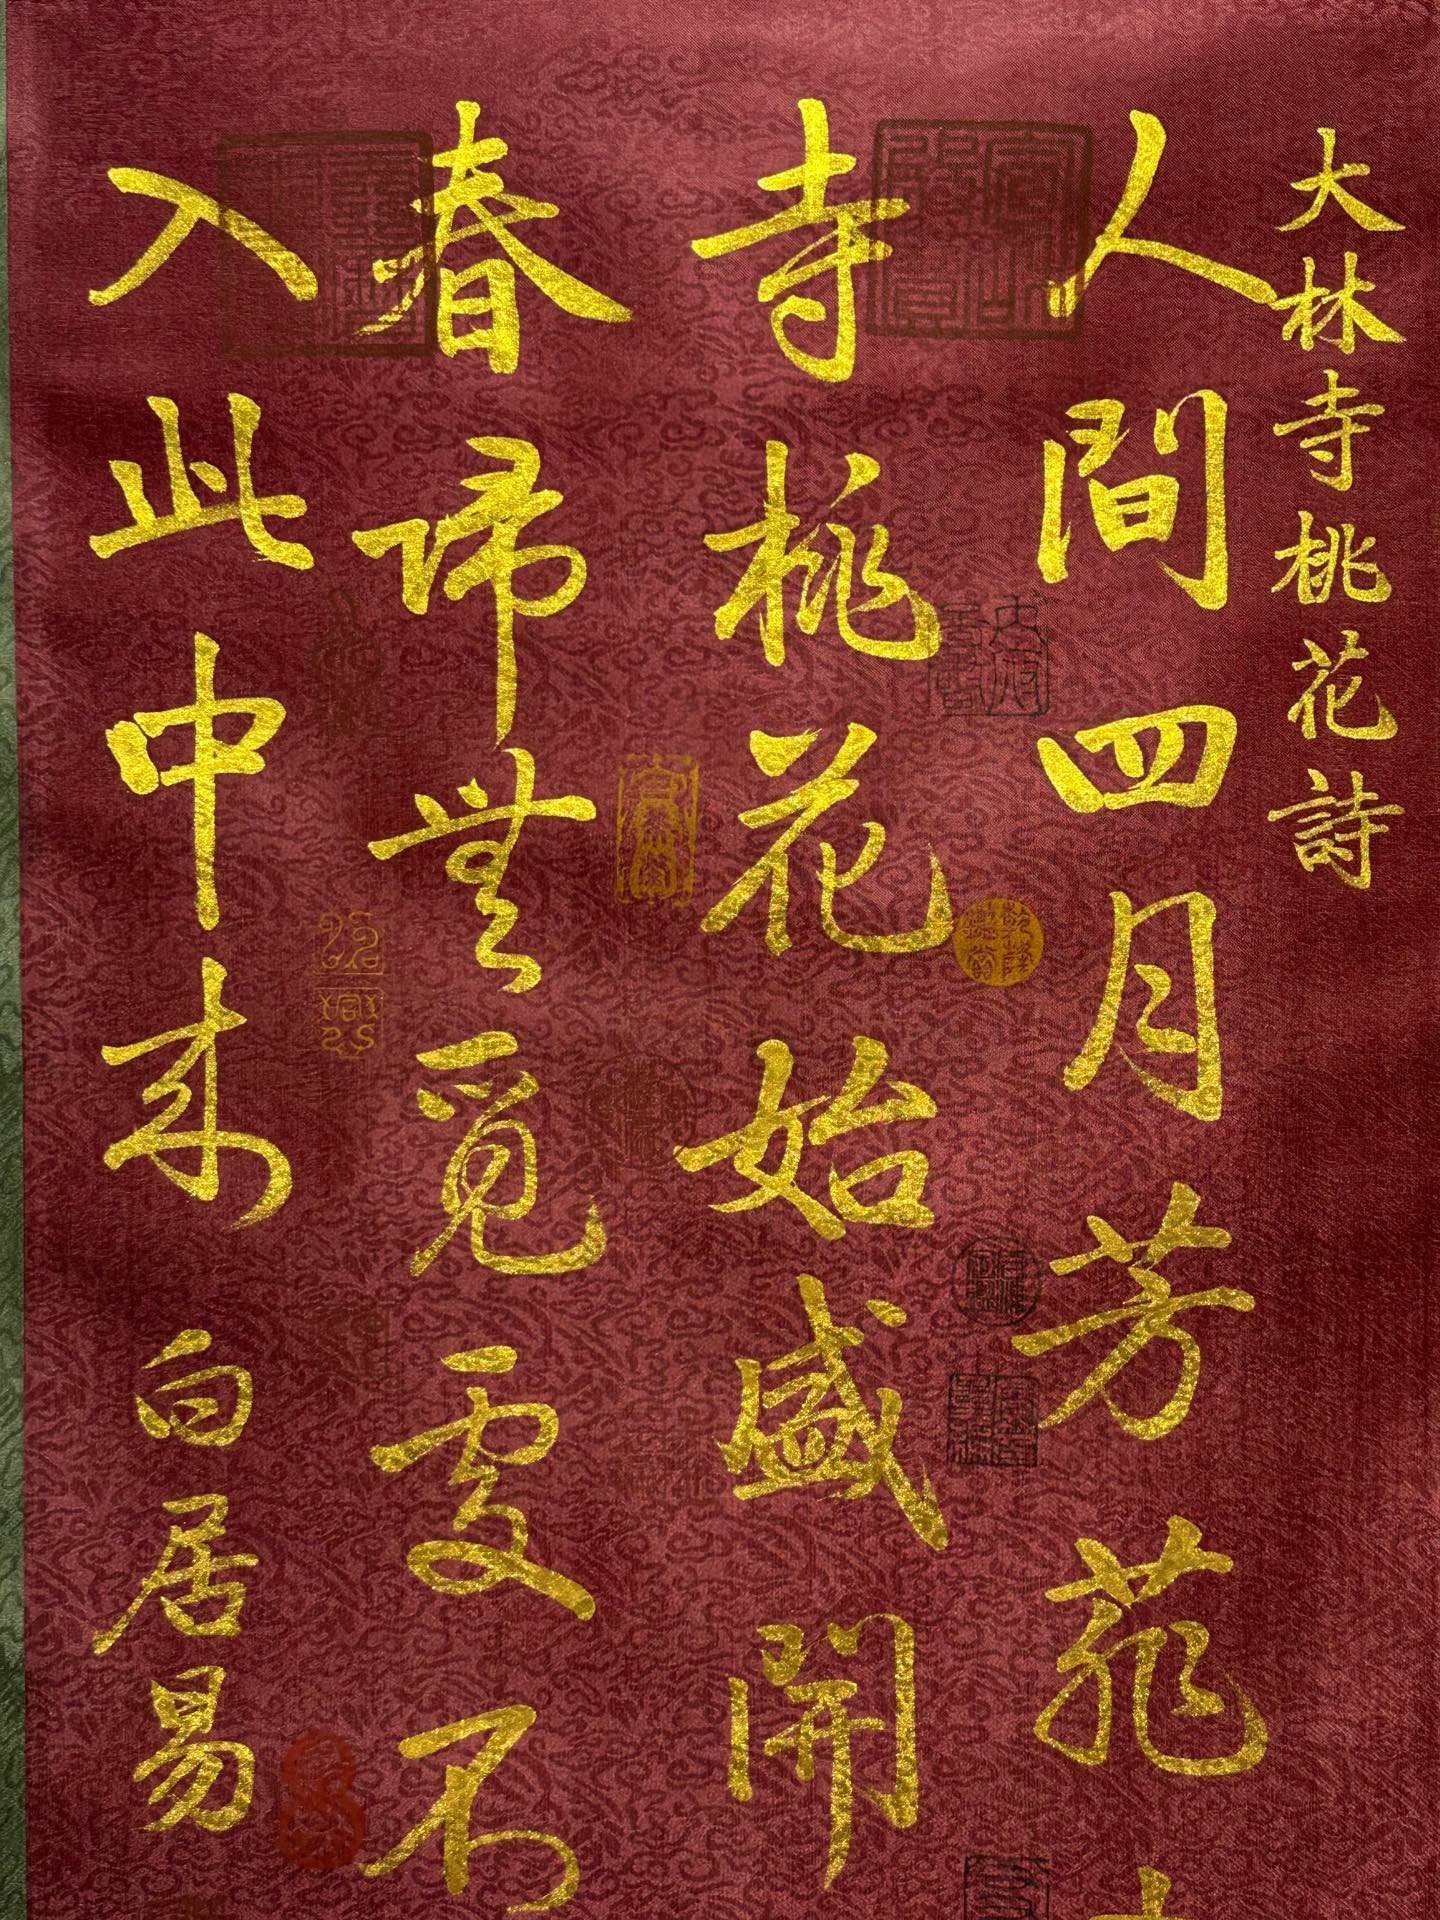 大林寺桃花詩
人間四月芳菲
寺桃花始盛開
春歸無覓處不
入此中來 白居易